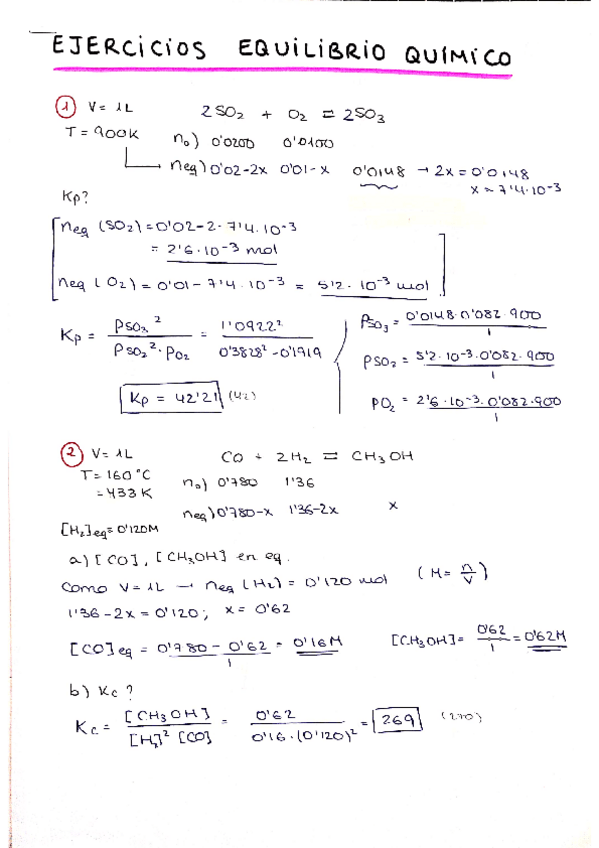 EJERCICIOS EQUILIBRIO QUÍMICO
① V= 1L 2SO₂ + O₂ ⇌ 2SO₃
T= 900K n₀) 0'0200 0'0100
neq) 0'02-2x 0'01-x 0'0148 → 2x = 0'0148
x = 7'4·10⁻³
Kp?
neq (SO₂) = 0'02-2·7'4·10⁻³
= 2'6·10⁻³ mol
neq (O₂) = 0'01-7'4·10⁻³ = 5'2·10⁻³ mol
Kp = PSO₃² / PSO₂²·PO₂ = 1'0922² / 0'3828²-0'1919
PSO₃ = 0'0148·0'082·900 / 1
PSO₂ = 5'2·10⁻³·0'082·900 / 1
Kp = 42'21 (42)
PO₂ = 2'6·10⁻³·0'082·900 / 1
② V= 1L CO + 2H₂ ⇌ CH₃OH
T= 160°C n₀) 0'780 1'36
= 433K
neq) 0'780-x 1'36-2x x
[H₂]eq = 0'120M
a) [CO], [CH₃OH] en eq.
Como V= 1L → neq (H₂) = 0'120 mol (M= n/V)
1'36-2x = 0'120; x = 0'62
[CO]eq = 0'780-0'62 / 1 = 0'16M [CH₃OH] = 0'62 / 1 = 0'62M
b) Kc?
Kc = [CH₃OH] / [H₂]² [CO] = 0'62 / 0'16·(0'120)² = 269 (270)